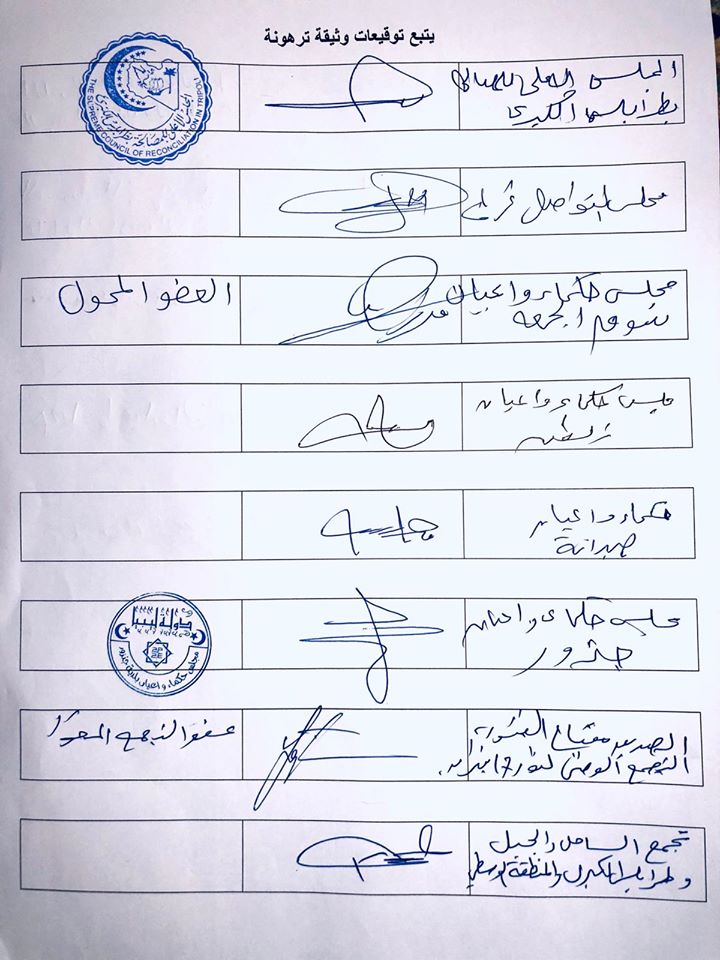 يتبع توقيعات وثيقة ترهونة
المجلس الاعلى للمصالحة
بطرابلس الكبرى
THE SUPREME COUNCIL OF RECONCILIATION IN TRIPOLI
المجلس الأعلى للمصالحة بطرابلس الكبرى
مجلس التواصل
مجلس حكماء واعيان
سوق الجمعه
العضو المخول
مجلس حكماء واعيان
حكماء واعيان
صبراتة
مجلس حكماء واعيان
جنزور
دولة ليبيا
مجلس حكماء و اعيان بلدية جنزور
التجمع الوطني لثوار 17 فبراير
عضو التجمع المخول
تجمع الساحل والجبل
وطرابلس الكبرى والمنطقة الوسطى